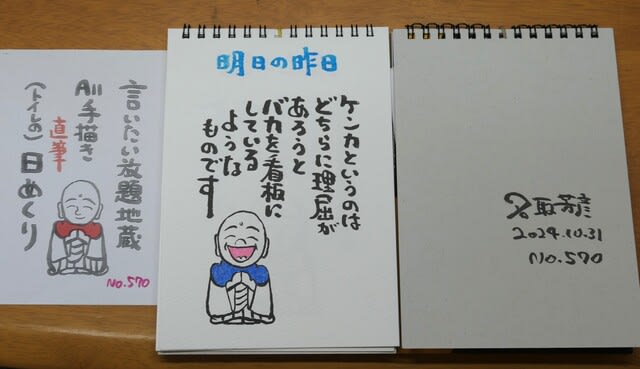 言いたい放題地蔵
All手描き
直筆
(トイレの)日めくり
No.570
明日の昨日
ケンカというのは
どちらに理屈が
あろうと
バカを看板に
している
ような
ものです
取芳彦
2024.10.31
No.570